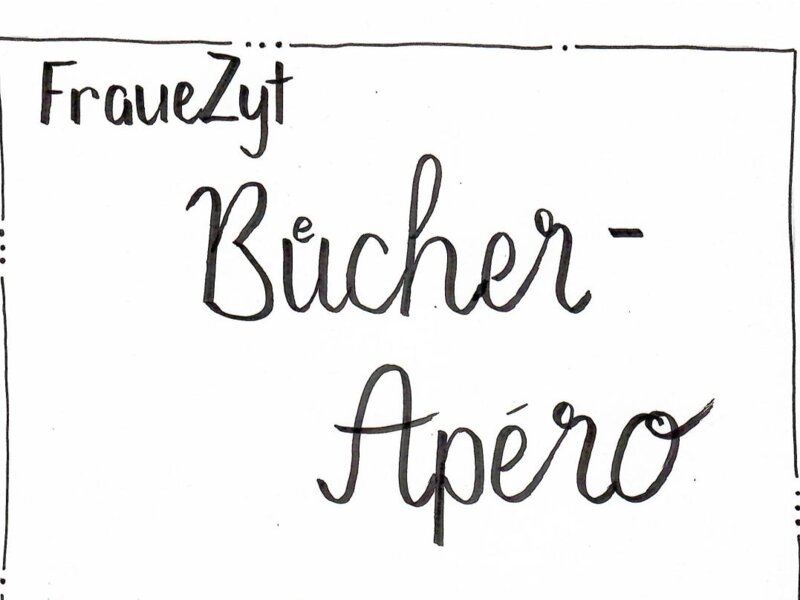 FraueZyt
Buͤcher-
Apéro